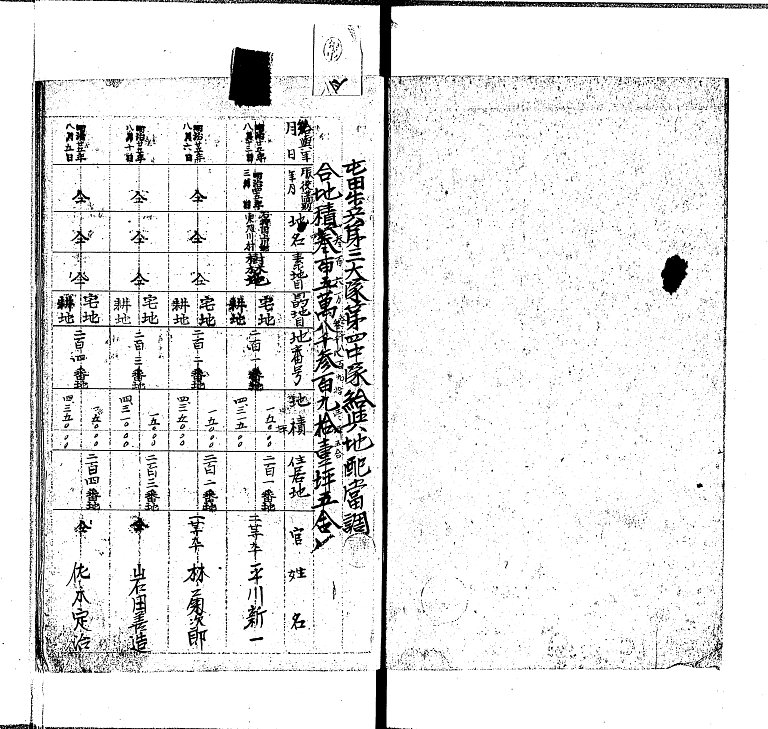 屯田歩兵第三大隊第四中隊給與地配當調
合地積参百五萬八千参百九拾壹坪五合
給與年月日 服役満期年月 地名 素地目 高地目 地番号 地積 住居地 官 姓名
明治廿五年八月三日 樹林地 宅地 耕地 二百一番地 一五〇、〇〇 四三一五、〇〇 二百一番地 二等卒 平川新一
明治廿五年八月六日 仝 仝 仝 宅地 耕地 二百二番地 一五〇、〇〇 四三五〇、〇〇 二百二番地 一等卒 林菊次郎
明治廿五年八月十日 仝 仝 仝 宅地 耕地 二百三番地 一五〇、〇〇 四三一〇、〇〇 二百三番地 仝 岩田善造
明治廿五年八月五日 仝 仝 仝 宅地 耕地 二百四番地 一五〇、〇〇 四三五〇、〇〇 二百四番地 仝 佐木定治